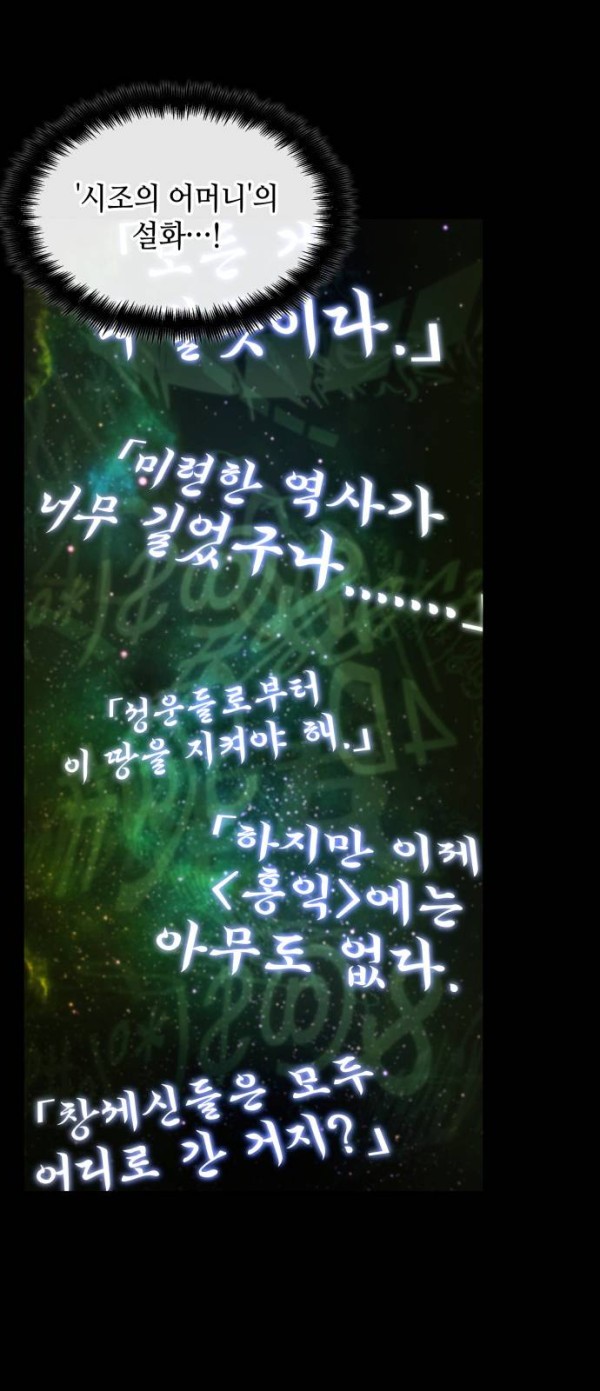 '시조의 어머니'의
설화…!
「모든
이다.」
「미련한 역사가
너무 길었구나.......」
「성운들로부터
이 땅을 지켜야 해.」
「하지만 이제
<홍익>에는
아무도 없다.
「창세신들은 모두
어디로 간 거지?」